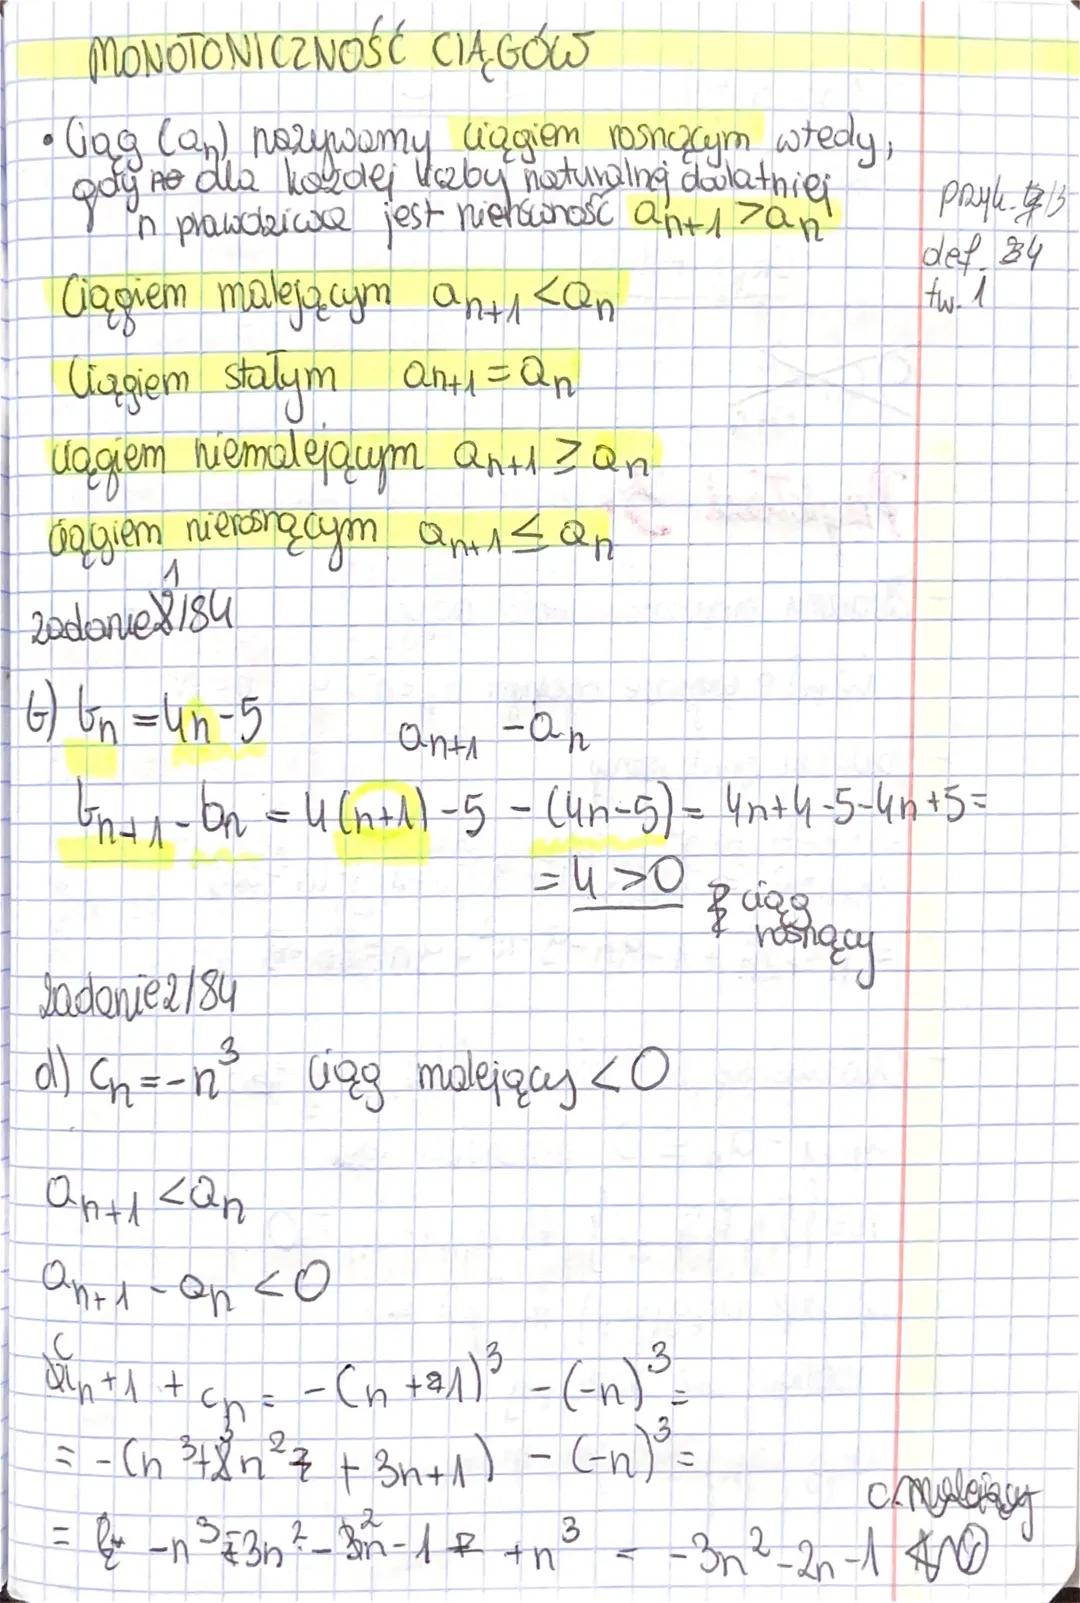 MONOTONICZNOŚĆ CIĄGÓW
• Ciąg (an) nazywamy ciągiem rosnącym wtedy,
gdy dla każdej liczby naturalnej dodatniej
n prawdziwa jest nierówność an+1 > an
przyk. /3
def. 34
tw. 1
Ciągiem malejącym an+1 < an
Ciągiem stałym an+1 = an
ciągiem niemalejącym an+1 ≥ an
ciągiem nierosnącym an+1 ≤ an
zadanie 1/84
b) bn = 4n-5 an+1 - an
bn+1 - bn = 4(n+1) - 5 - (4n-5) = 4n+4-5-4n+5 =
= 4 > 0 ciąg
rosnący
zadanie 2/84
d) cn = -n³ ciąg malejący < 0
an+1 < an
an+1 - an < 0
cn+1 + cn = -(n+1)³ - (-n)³ =
= -(n³+3n² + 3n+1) - (-n)³ =
c. malejący
= -n³-3n²- -1 +n³ = -3n²-2n-1 < 0